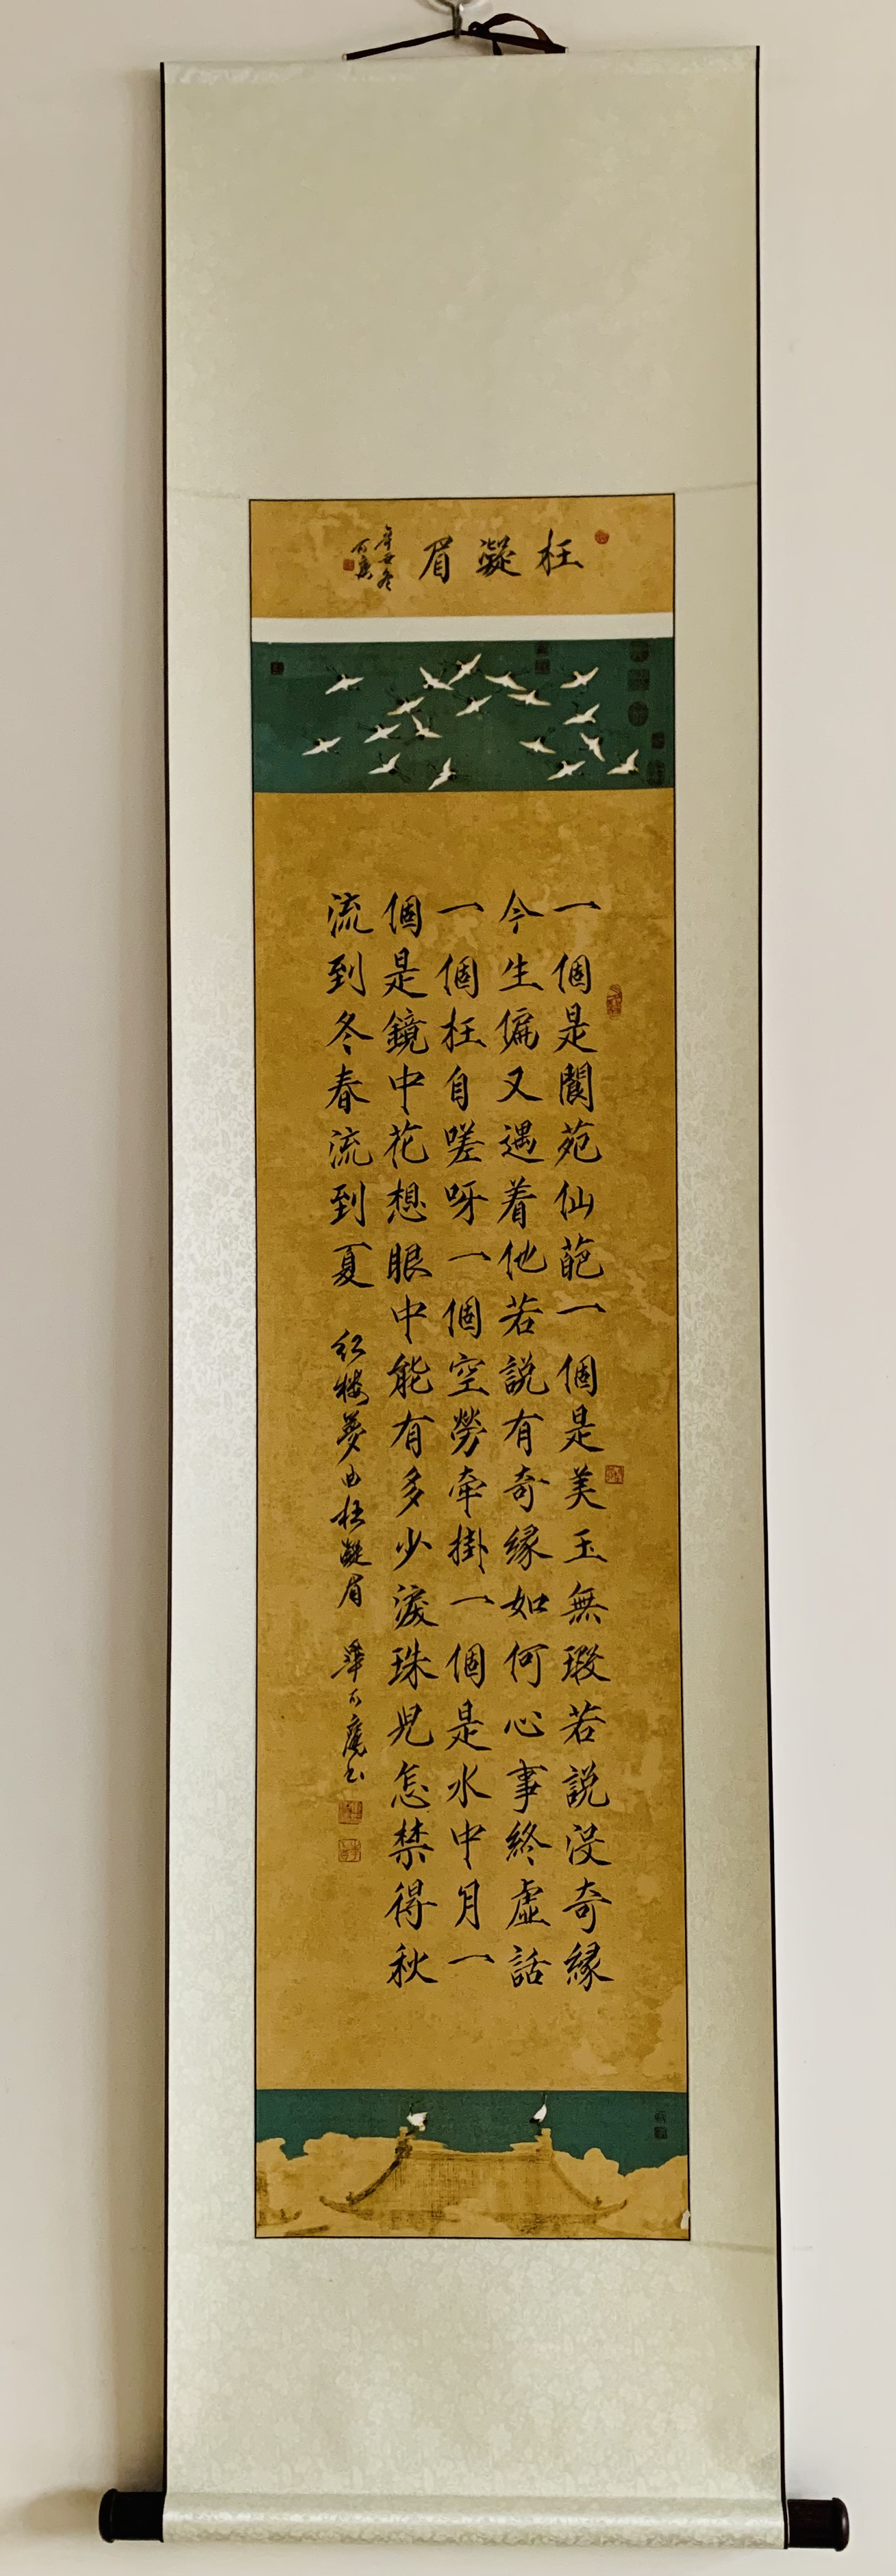 枉凝眉
辛丑冬
一個是閬苑仙葩一個是美玉無瑕若説没奇緣
今生偏又遇着他若説有奇緣如何心事終虛話
一個枉自嗟呀一個空勞牽掛一個是水中月一
個是鏡中花想眼中能有多少淚珠兒怎禁得秋
流到冬春流到夏 红楼梦曲枉凝眉